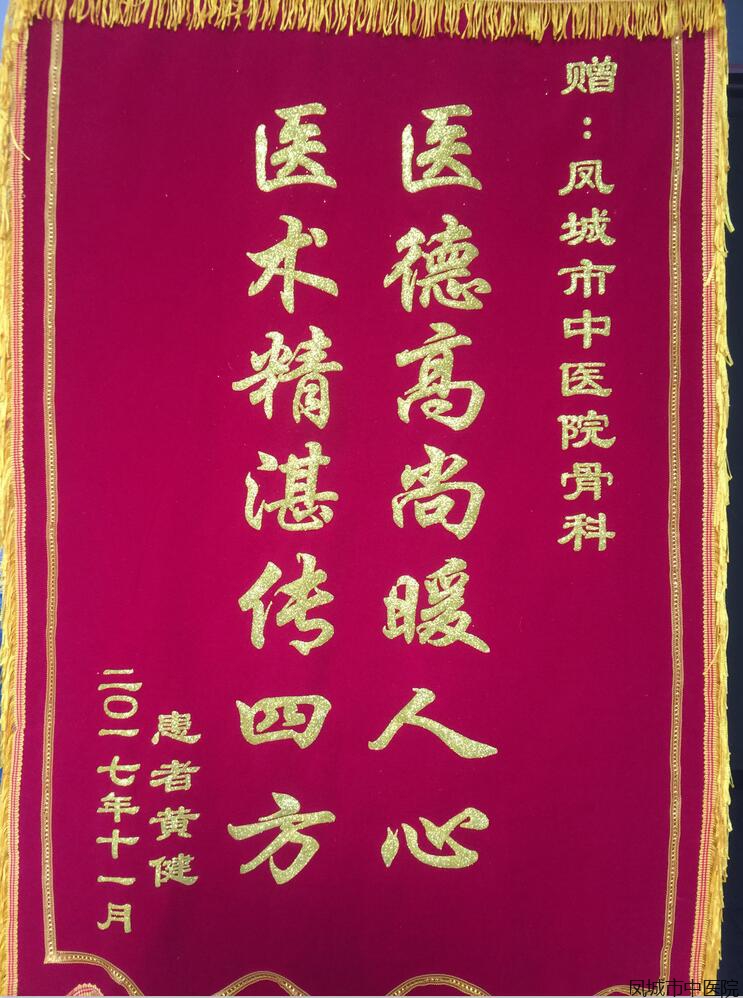 赠：凤城市中医院骨科
医德高尚暖人心
医术精湛传四方
患者黄健
二〇一七年十一月
凤城市中医院